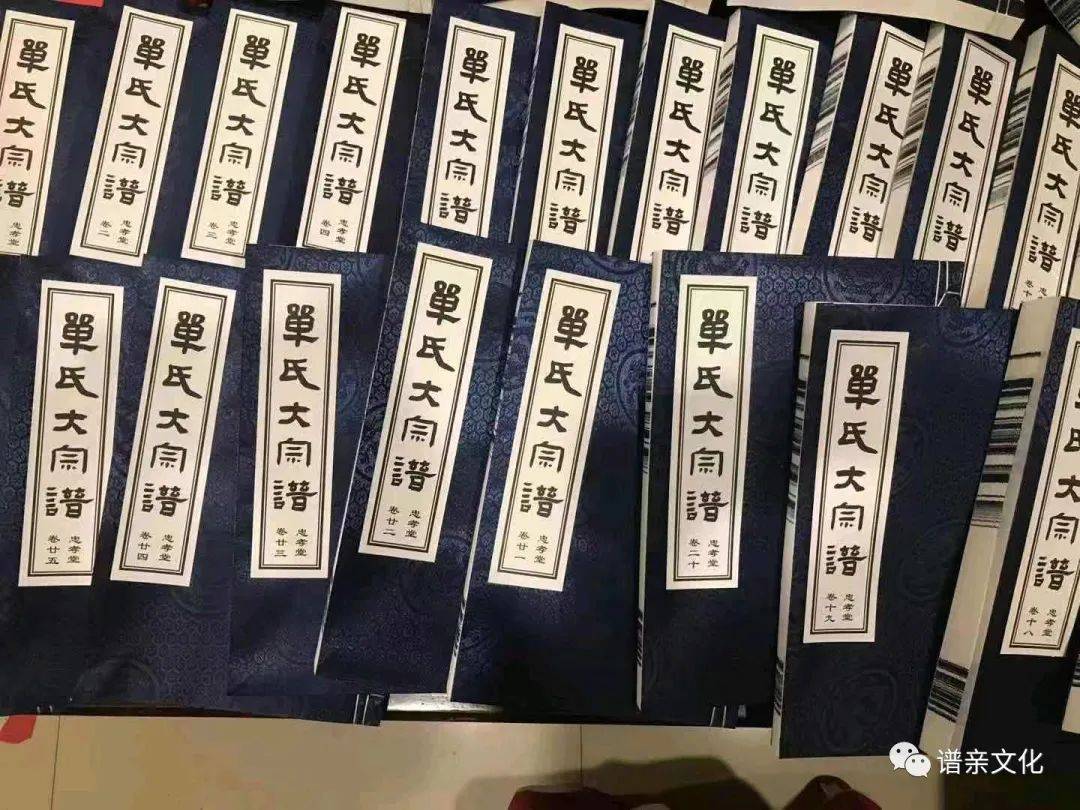 單氏大宗譜
單氏大宗譜 忠孝堂 卷二
單氏大宗譜 忠孝堂 卷三
單氏大宗譜 忠孝堂 卷四
單氏大宗譜
單氏大宗譜
單氏大宗譜
單氏大宗譜
單氏大宗譜
單氏大宗譜
單氏大宗譜 忠
單氏大宗譜 忠孝堂 卷廿五
單氏大宗譜 忠孝堂 卷廿四
單氏大宗譜 忠孝堂 卷廿三
單氏大宗譜 忠孝堂 卷廿二
單氏大宗譜 忠孝堂 卷廿一
單氏大宗譜 忠孝堂 卷二十
單氏大宗譜 忠孝堂 卷十九
單氏大宗譜 忠孝堂 卷十八
谱亲文化